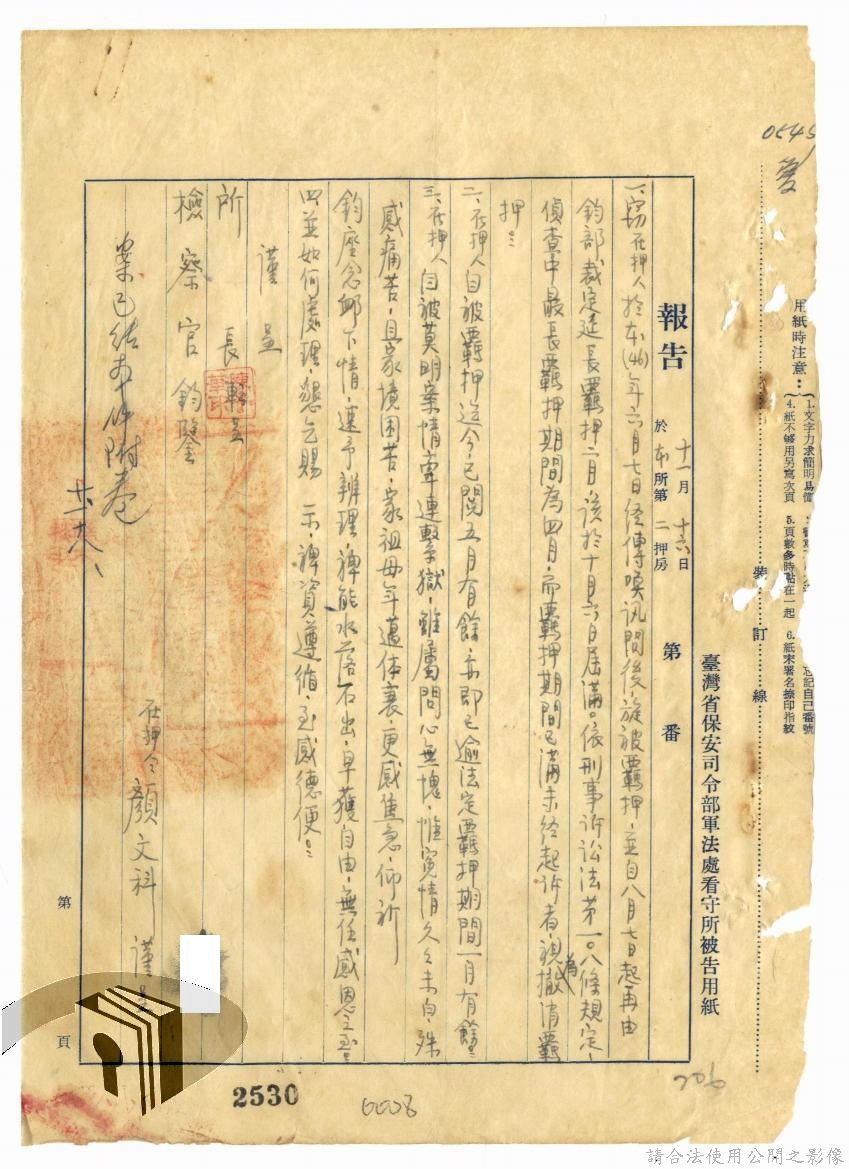 0545
用紙時注意：
1.文字力求簡明易懂
4.紙不够用另寫次頁
5.頁數多時點在一起
忘記自己番號
6.紙末署名捺印指紋
裝訂線
臺灣省保安司令部軍法處看守所被告用紙
報告
十一月十六日
於本所第二押房
第番
一、竊在押人於本(46)年六月七日經傳喚訊問後，旋被羈押，並自八月七日起再由
鈞部裁定延長羈押二月，該於十月六日屆滿。依刑事訴訟法第一〇八條規定，
偵查中最長羈押期間為四月，而羈押期間已滿未經起訴者，視為撤消羈
押。
二、在押人自被羈押迄今，已閱五月有餘，亦即已逾法定羈押期間一月有餘。
三、在押人自被莫明案情牽連繫獄，雖屬問心無愧，惟寃情久久未白，殊
感痛苦，且家境困苦，家祖母年邁体衰，更感焦急，仰祈
鈞座念卹下情，速予辦理，俾能水落石出，早獲自由，無任感恩之至。
四、並如何處理，懇乞賜 示，俾資遵循，至感德便。
謹呈
所長轉呈
檢察官鈞鑒
案已結本件附卷
在押人顏文科 謹呈
第
頁
2530
0008
206
請合法使用公開之影像